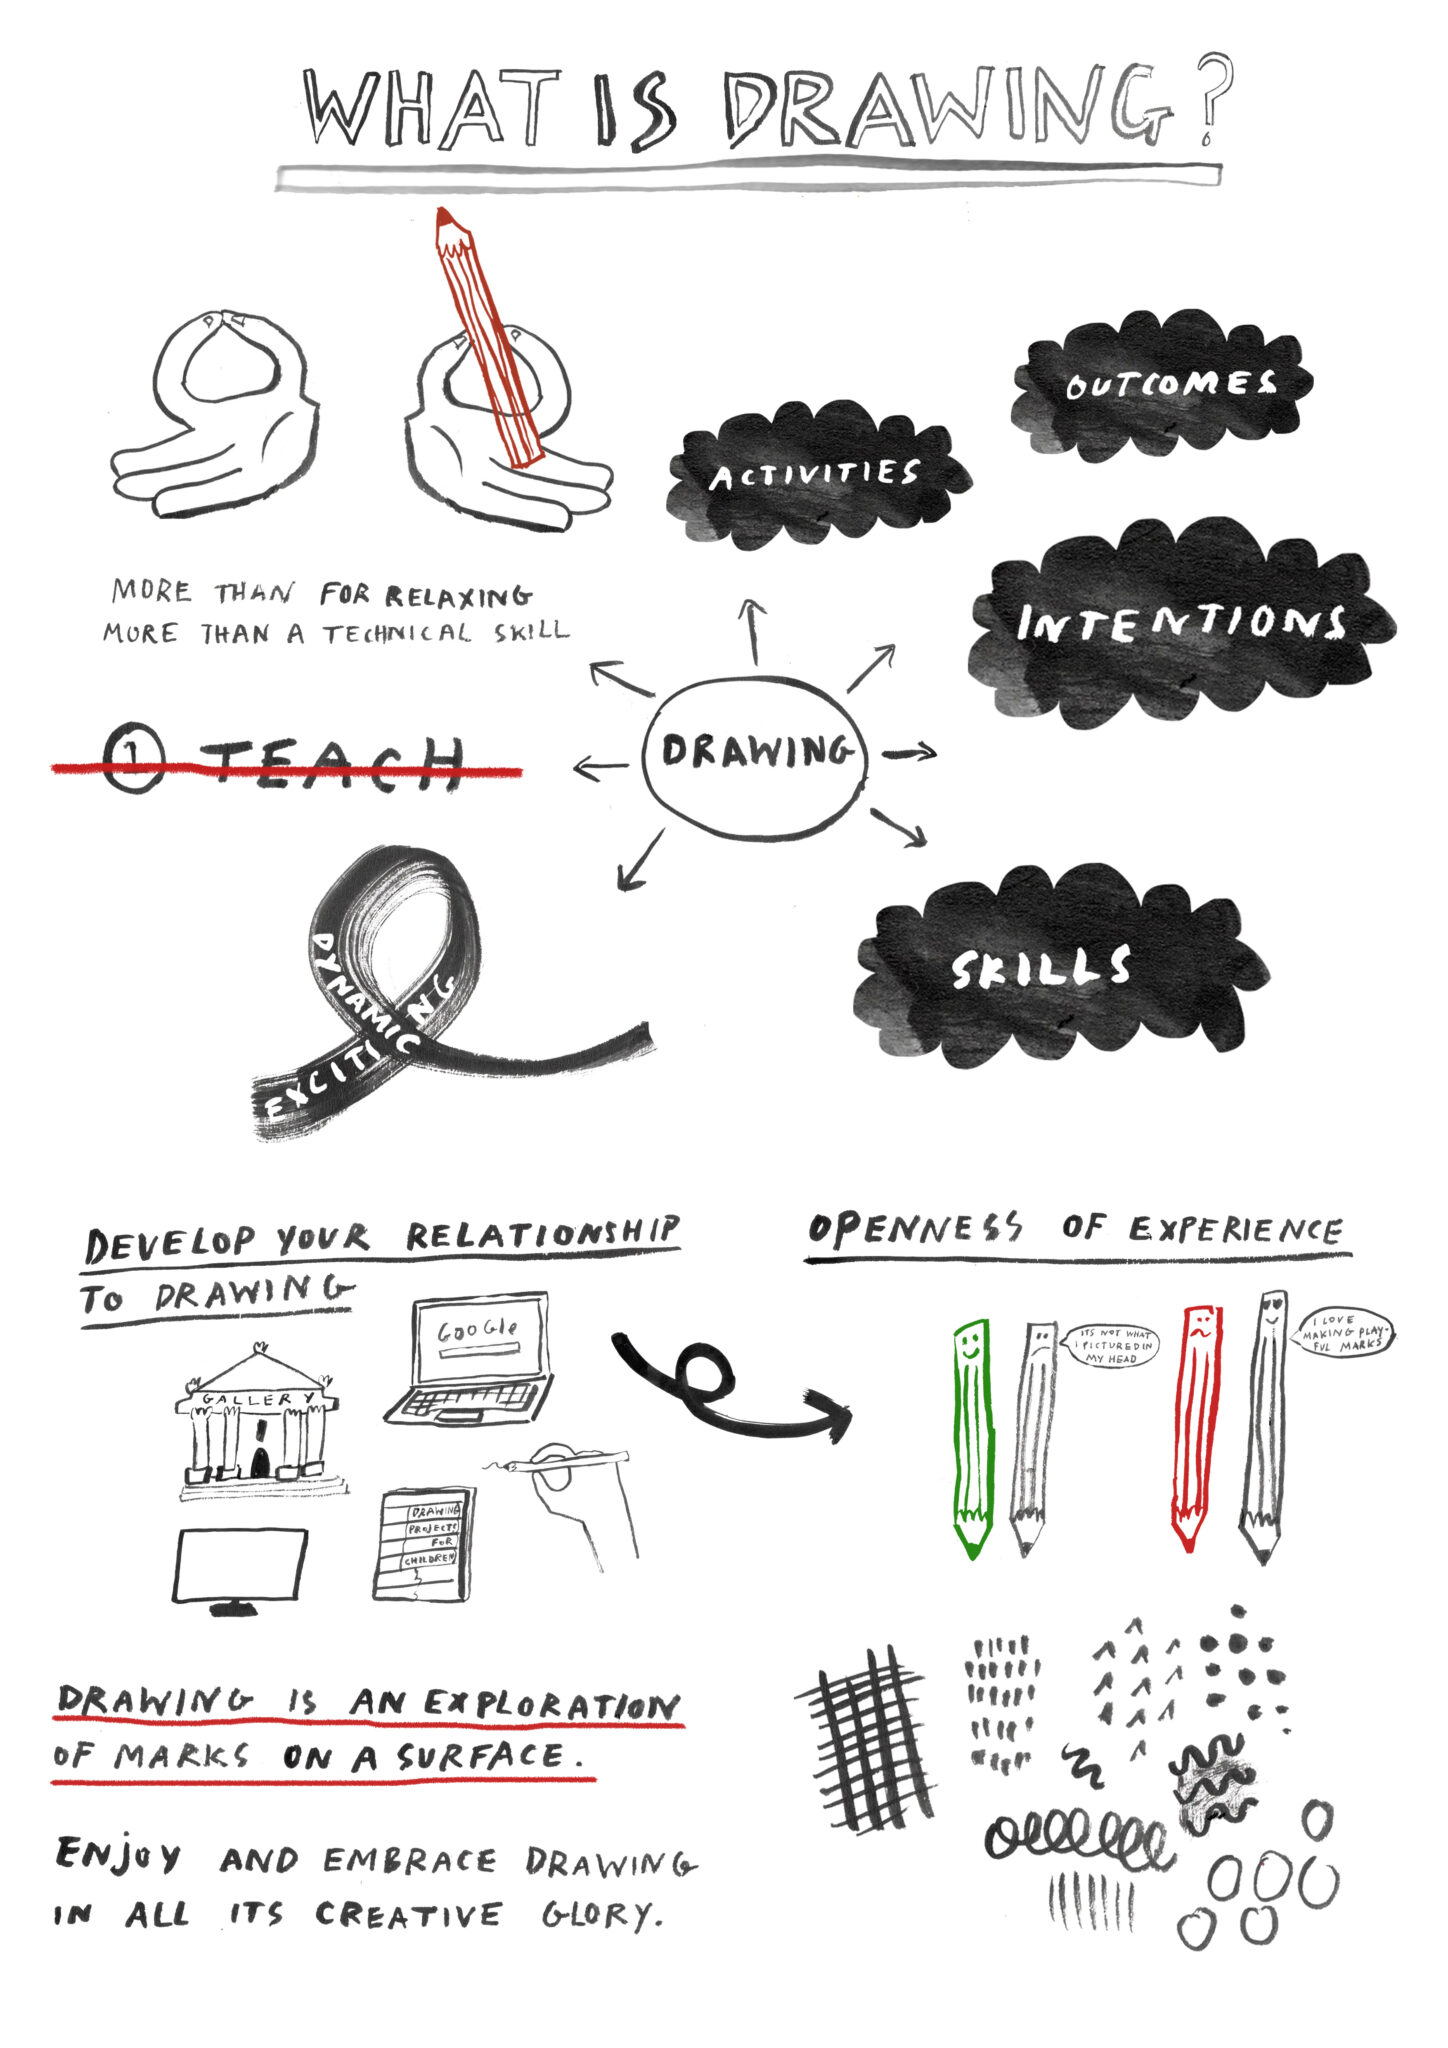 WHAT IS DRAWING?
OUTCOMES
ACTIVITIES
INTENTIONS
MORE THAN FOR RELAXING
MORE THAN A TECHNICAL SKILL
1 TEACH
DRAWING
SKILLS
DYNAMIC
EXCITING
DEVELOP YOUR RELATIONSHIP
TO DRAWING
GOOGLE
GALLERY
DRAWING
PROJECTS
FOR
CHILDREN
OPENNESS OF EXPERIENCE
ITS NOT WHAT
I PICTURED IN
MY HEAD
I LOVE
MAKING PLAY-
FUL MARKS
DRAWING IS AN EXPLORATION
OF MARKS ON A SURFACE.
ENJOY AND EMBRACE DRAWING
IN ALL ITS CREATIVE GLORY.